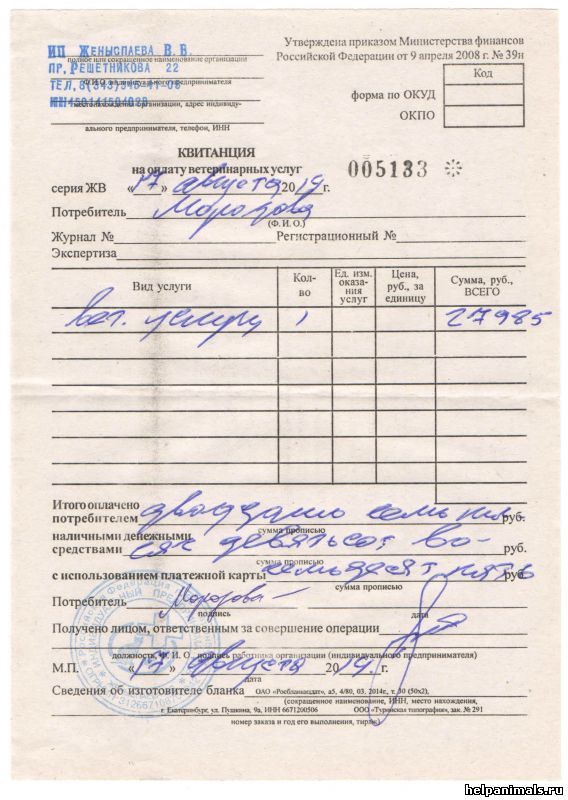 Утверждена приказом Министерства финансов
Российской Федерации от 9 апреля 2008 г. № 39н
ИП Женыспаева В.В.
полное или сокращенное наименование организации
ПР. РЕШЕТНИКОВА 22
Ф.И.О. индивидуального предпринимателя
местонахождения организации, адрес индивиду-
ального предпринимателя, телефон, ИНН
Код
форма по ОКУД
ОКПО
КВИТАНЦИЯ
на оплату ветеринарных услуг
005133
серия ЖВ «17» августа 2014 г.
Потребитель Морозова
(Ф.И.О.)
Журнал № Регистрационный №
Экспертиза
Вид услуги Кол-во Ед. изм. оказа-ния услуг Цена, руб., за единицу Сумма, руб., ВСЕГО
вет. услуги 1 27985
Итого оплачено
потребителем двадцать семь ты- руб.
сумма прописью
наличными денежными
средствами сяч девятьсот во- руб.
сумма прописью
с использованием платежной карты семьдесят пять руб.
сумма прописью
Потребитель Морозова
подпись дата
Получено лицом, ответственным за совершение операции
должность, Ф. И. О., подпись работника организации (индивидуального предпринимателя)
М.П. «17» августа 2014 г.
дата
Сведения об изготовителе бланка ОАО «Росбланкиздат», а5, 4/80, 03. 2014г., т. 30 (50х2),
(сокращенное наименование, ИНН, место нахождения,
г. Екатеринбург, ул. Пушкина, 9а, ИНН 6671200506 ООО «Туринская типография», зак. № 291
номер заказа и год его выполнения, тираж)
helpanimals.ru